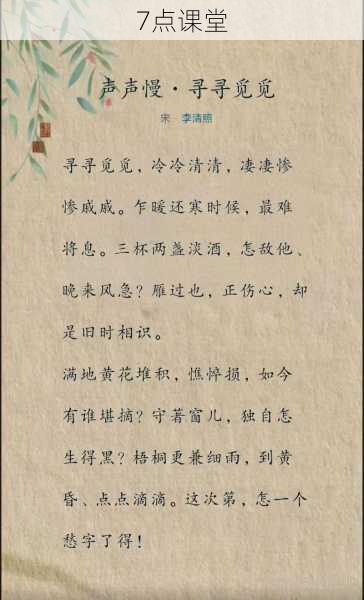 7点课堂
声声慢·寻寻觅觅
宋 李清照
寻寻觅觅，冷冷清清，凄凄惨
惨戚戚。乍暖还寒时候，最难
将息。三杯两盏淡酒，怎敌他、
晚来风急？雁过也，正伤心，却
是旧时相识。
满地黄花堆积，憔悴损，如今
有谁堪摘？守著窗儿，独自怎
生得黑？梧桐更兼细雨，到黄
昏、点点滴滴。这次第，怎一个
愁字了得！